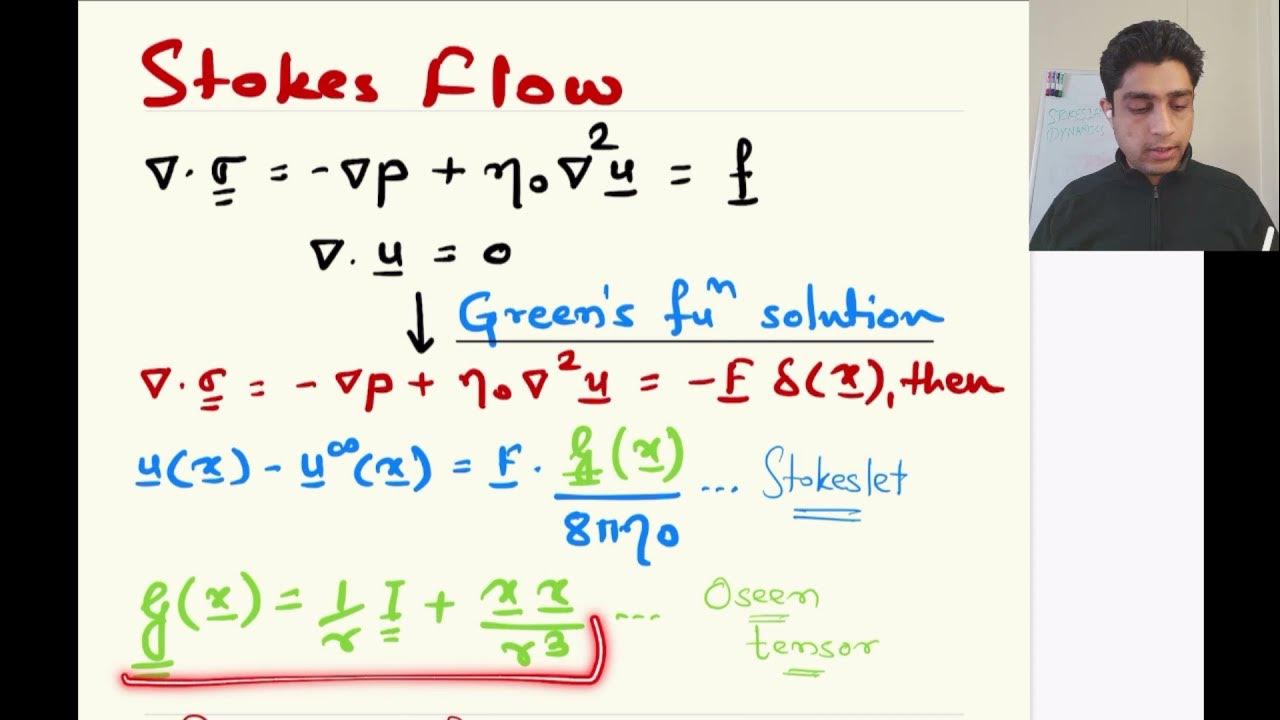 Stokes Flow
∇·σ = -∇p + η₀∇²u = f
∇·u = 0
↓ Green's fuⁿ solution
∇·σ = -∇p + η₀∇²u = -F δ(x), then
u(x) - u^∞(x) = F · G(x) / 8πη₀ ... Stokeslet
G(x) = 1/r I + x x / r³ .... Oseen
tensor
STOKESIA
DYNAMICS